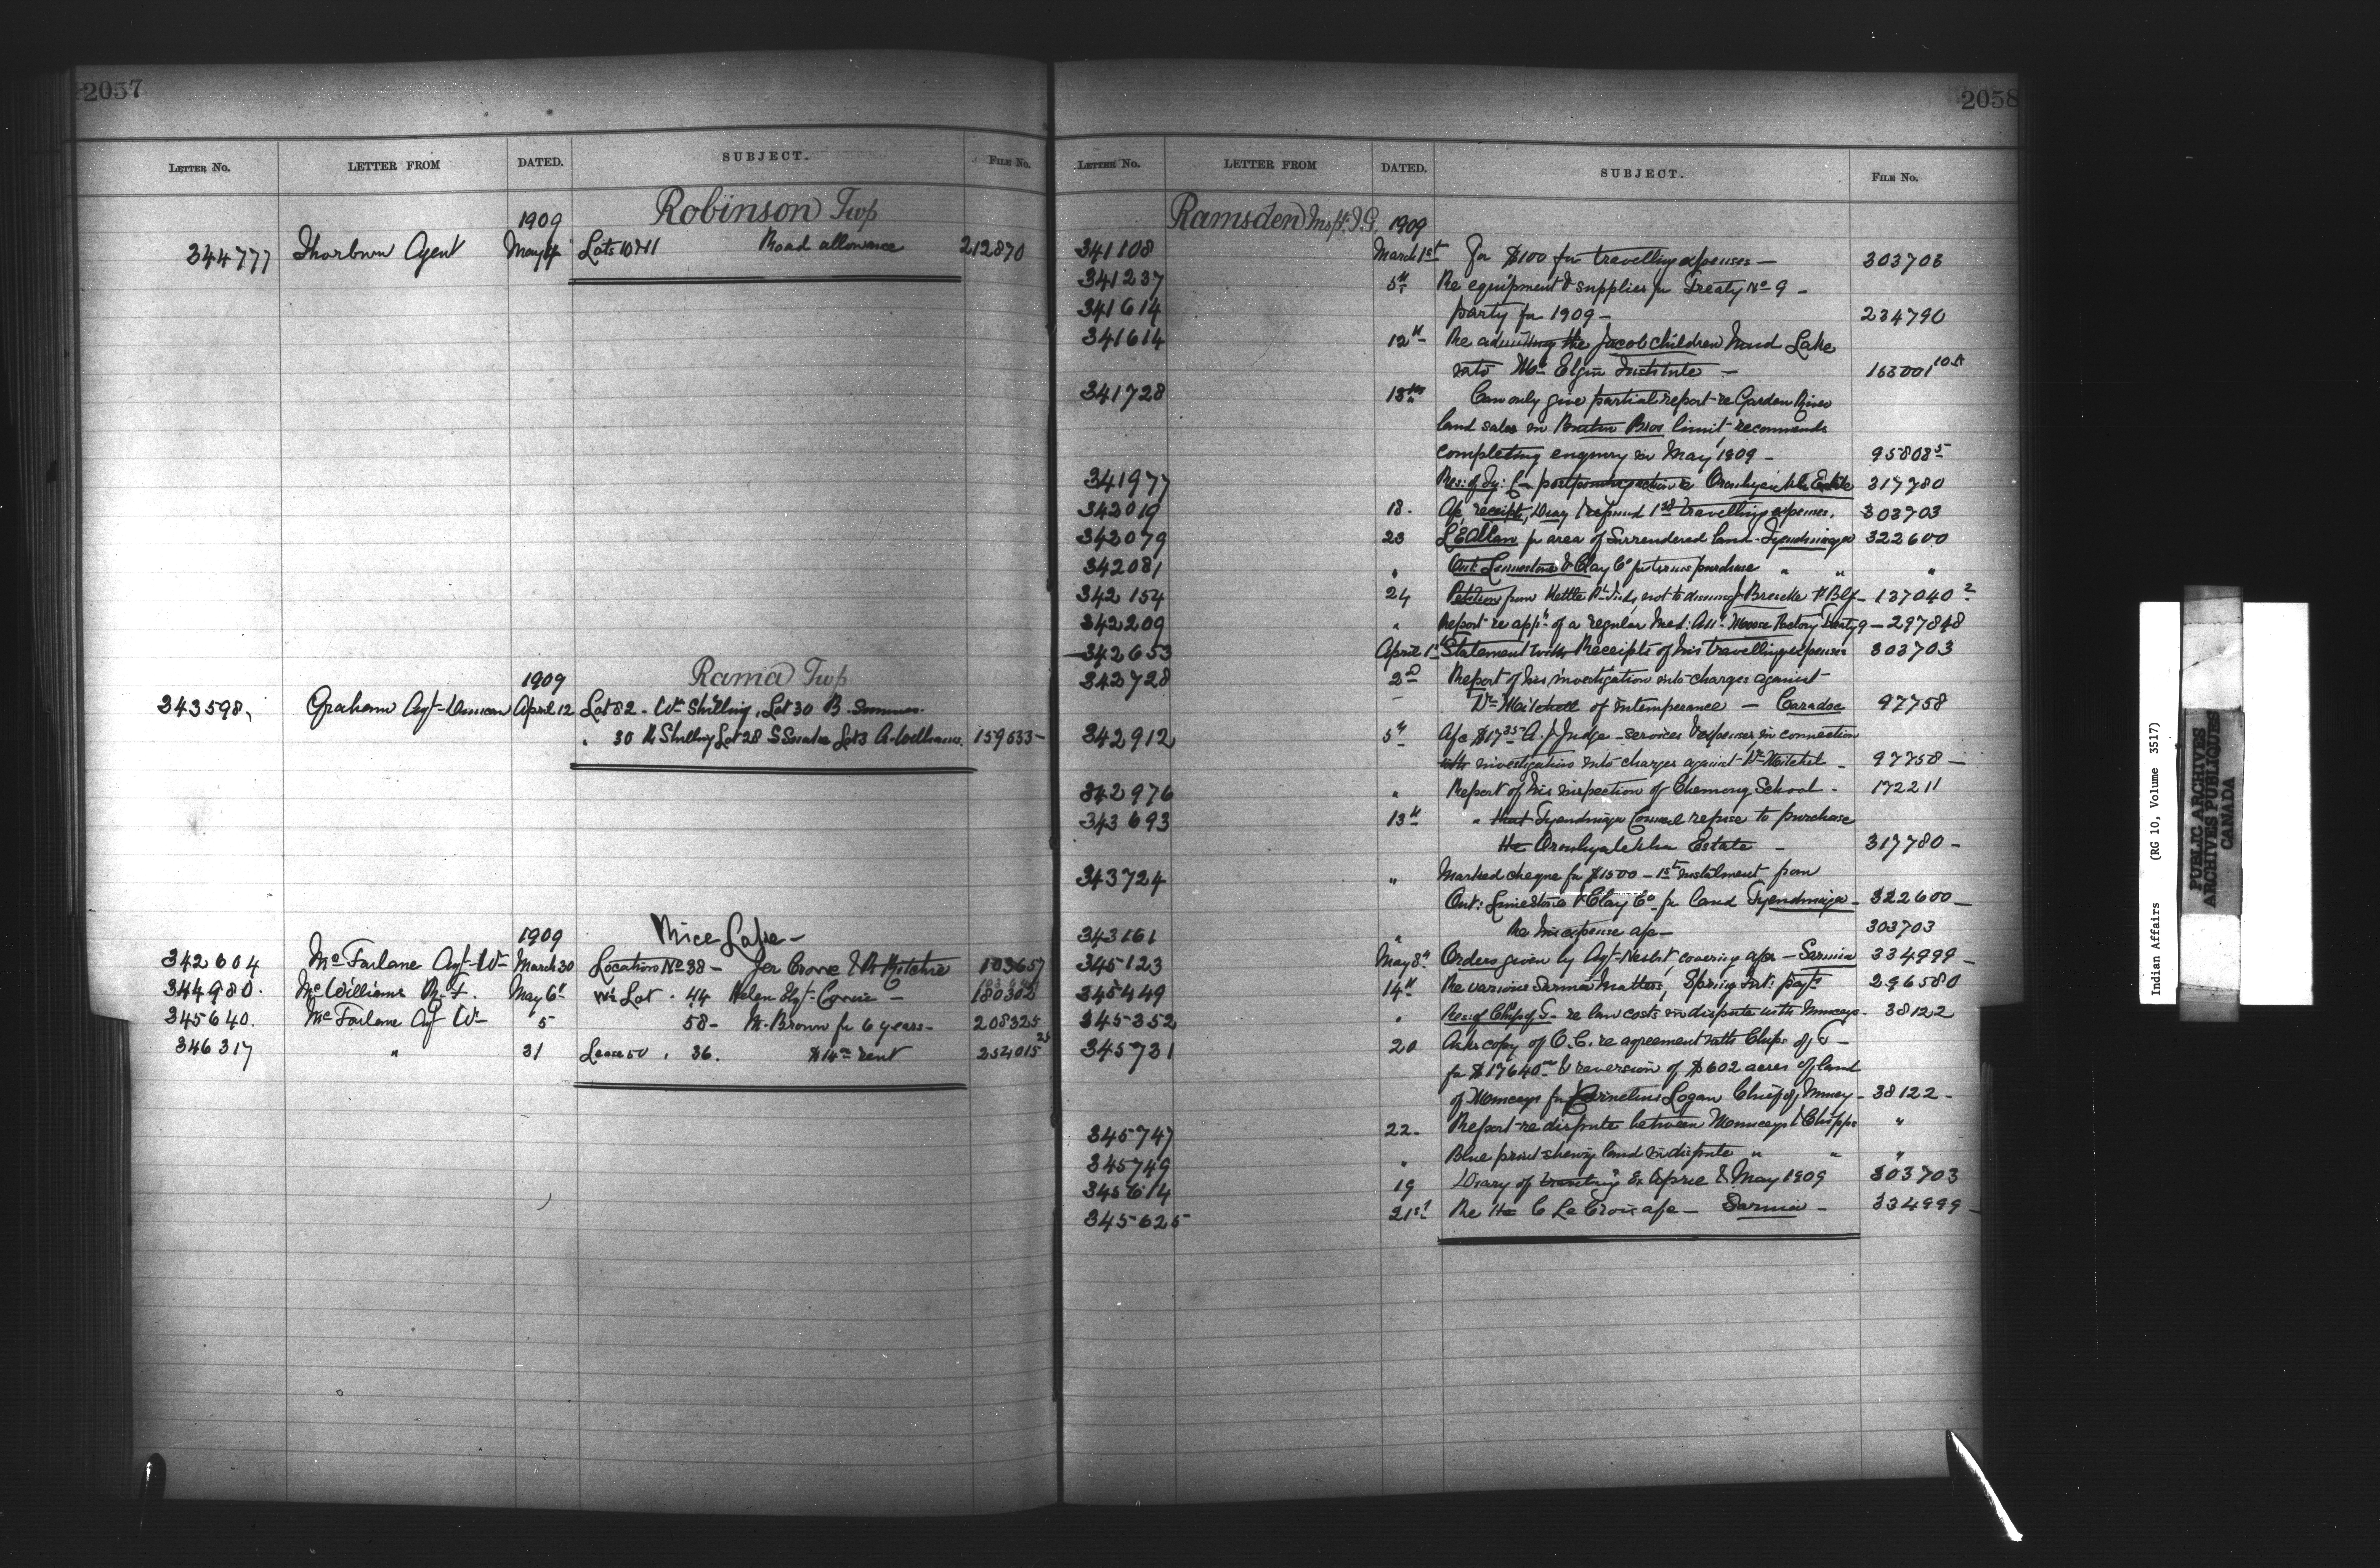 2057
LETTER No. LETTER FROM DATED. SUBJECT. FILE No.
Robinson Twp
1909
344777 Thorburn Agent May 4 Lots 10 & 11 Road allowance 212870
Rama Twp
1909
343598, Graham Agt Duncan April 12 Lot 32 - Wm Shilling, Lot 30 B.
" 30 R Shilling Lot 28 S Snake Lot 3 A. Williams. 159533 -
Rice Lake -
1909
342604 McFarlane Agt Wm March 30 Location No 38 - Jer Crowe & R Ritchie 103657
344980. McWilliams R. F. May 6 Lot . 44 Helen Crowe - 180302
345640. McFarlane Agt Wm 5 58 - M. Brown for 6 years - 208325
346317 " 31 Lease 50 . 36. $14 00 rent 254015 25
2058
LETTER No. LETTER FROM DATED. SUBJECT. FILE No.
Ramsden Inspr. I.G. 1909
341108 March 1st For $100 for travelling expenses - 303703
341237 5th Re equipment & supplies for Treaty No 9 -
341614 party for 1909 - 234790
341614 12th Re admitting the Jacob children Mud Lake
into Mt Elgin Institute -
341728 13th Can only give partial report re Garden River
land sales in Bros limit recommends
completing enquiry in May 1909 - 95803 5
341977 Res: of Ty: C postponing action re Oronhyatekha Estate 317780
342019 18. A/c receipts, Diary & refund 1st travelling expenses. 303703
342079 23 L E Allan for area of surrendered land - Tyendinaga 322600
342081 " Ont. Limestone & Clay Co for terms purchase " " "
342154 24 Petition from Kettle Pt Inds, not to dismiss J Bressette 137040 2
342209 " Report re appt of a regular Med: Att: Moose Factory Treaty 9 - 297848
342653 April 1st Statement with Receipts of his travelling expenses 303703
342728 2nd Report of his investigation into charges against
Dr Mitchell of intemperance - Caradoc 97758
342912 5th A/c $17 35 A. J Judge - services & expenses in connection
with investigation into charges against Dr Mitchel - 97758 -
342976 " Report of his inspection of Chemong School - 172211
343693 13th " that Tyendinaga Council refuse to purchase
the Oronhyatekha Estate - 317780 -
343724 " Marked cheque for $1500 - 1st instalment from
Ont: Limestone & Clay Co for land Tyendinaga - 322600 -
343161 " Re his expense a/c - 303703
345123 May 8th Orders given by Agt Nisbet, covering a/cs - Sarnia 334999 -
345449 14th Re various Sarnia matters, Spring Int: payts 296580
345352 " Res: of Chips of T - re law costs in dispute with Munceys - 38122
345731 20 Asks copy of O.C. re agreement with Chips of T -
for $17640 00 & reversion of $602 acres of land
of Munceys for Cornelius Logan Chief of Muncey - 38122 -
345747 22 - Report re dispute between Munceys & Chipps "
345749 " Blue print shewing land in dispute " " "
345614 19 Diary of travelling Ex April & May 1909 303703
345625 21st Re the C La Croix a/c - Sarnia - 334999 -
Indian Affairs (RG 10, Volume 3517)
PUBLIC ARCHIVES
ARCHIVES PUBLIQUES
CANADA